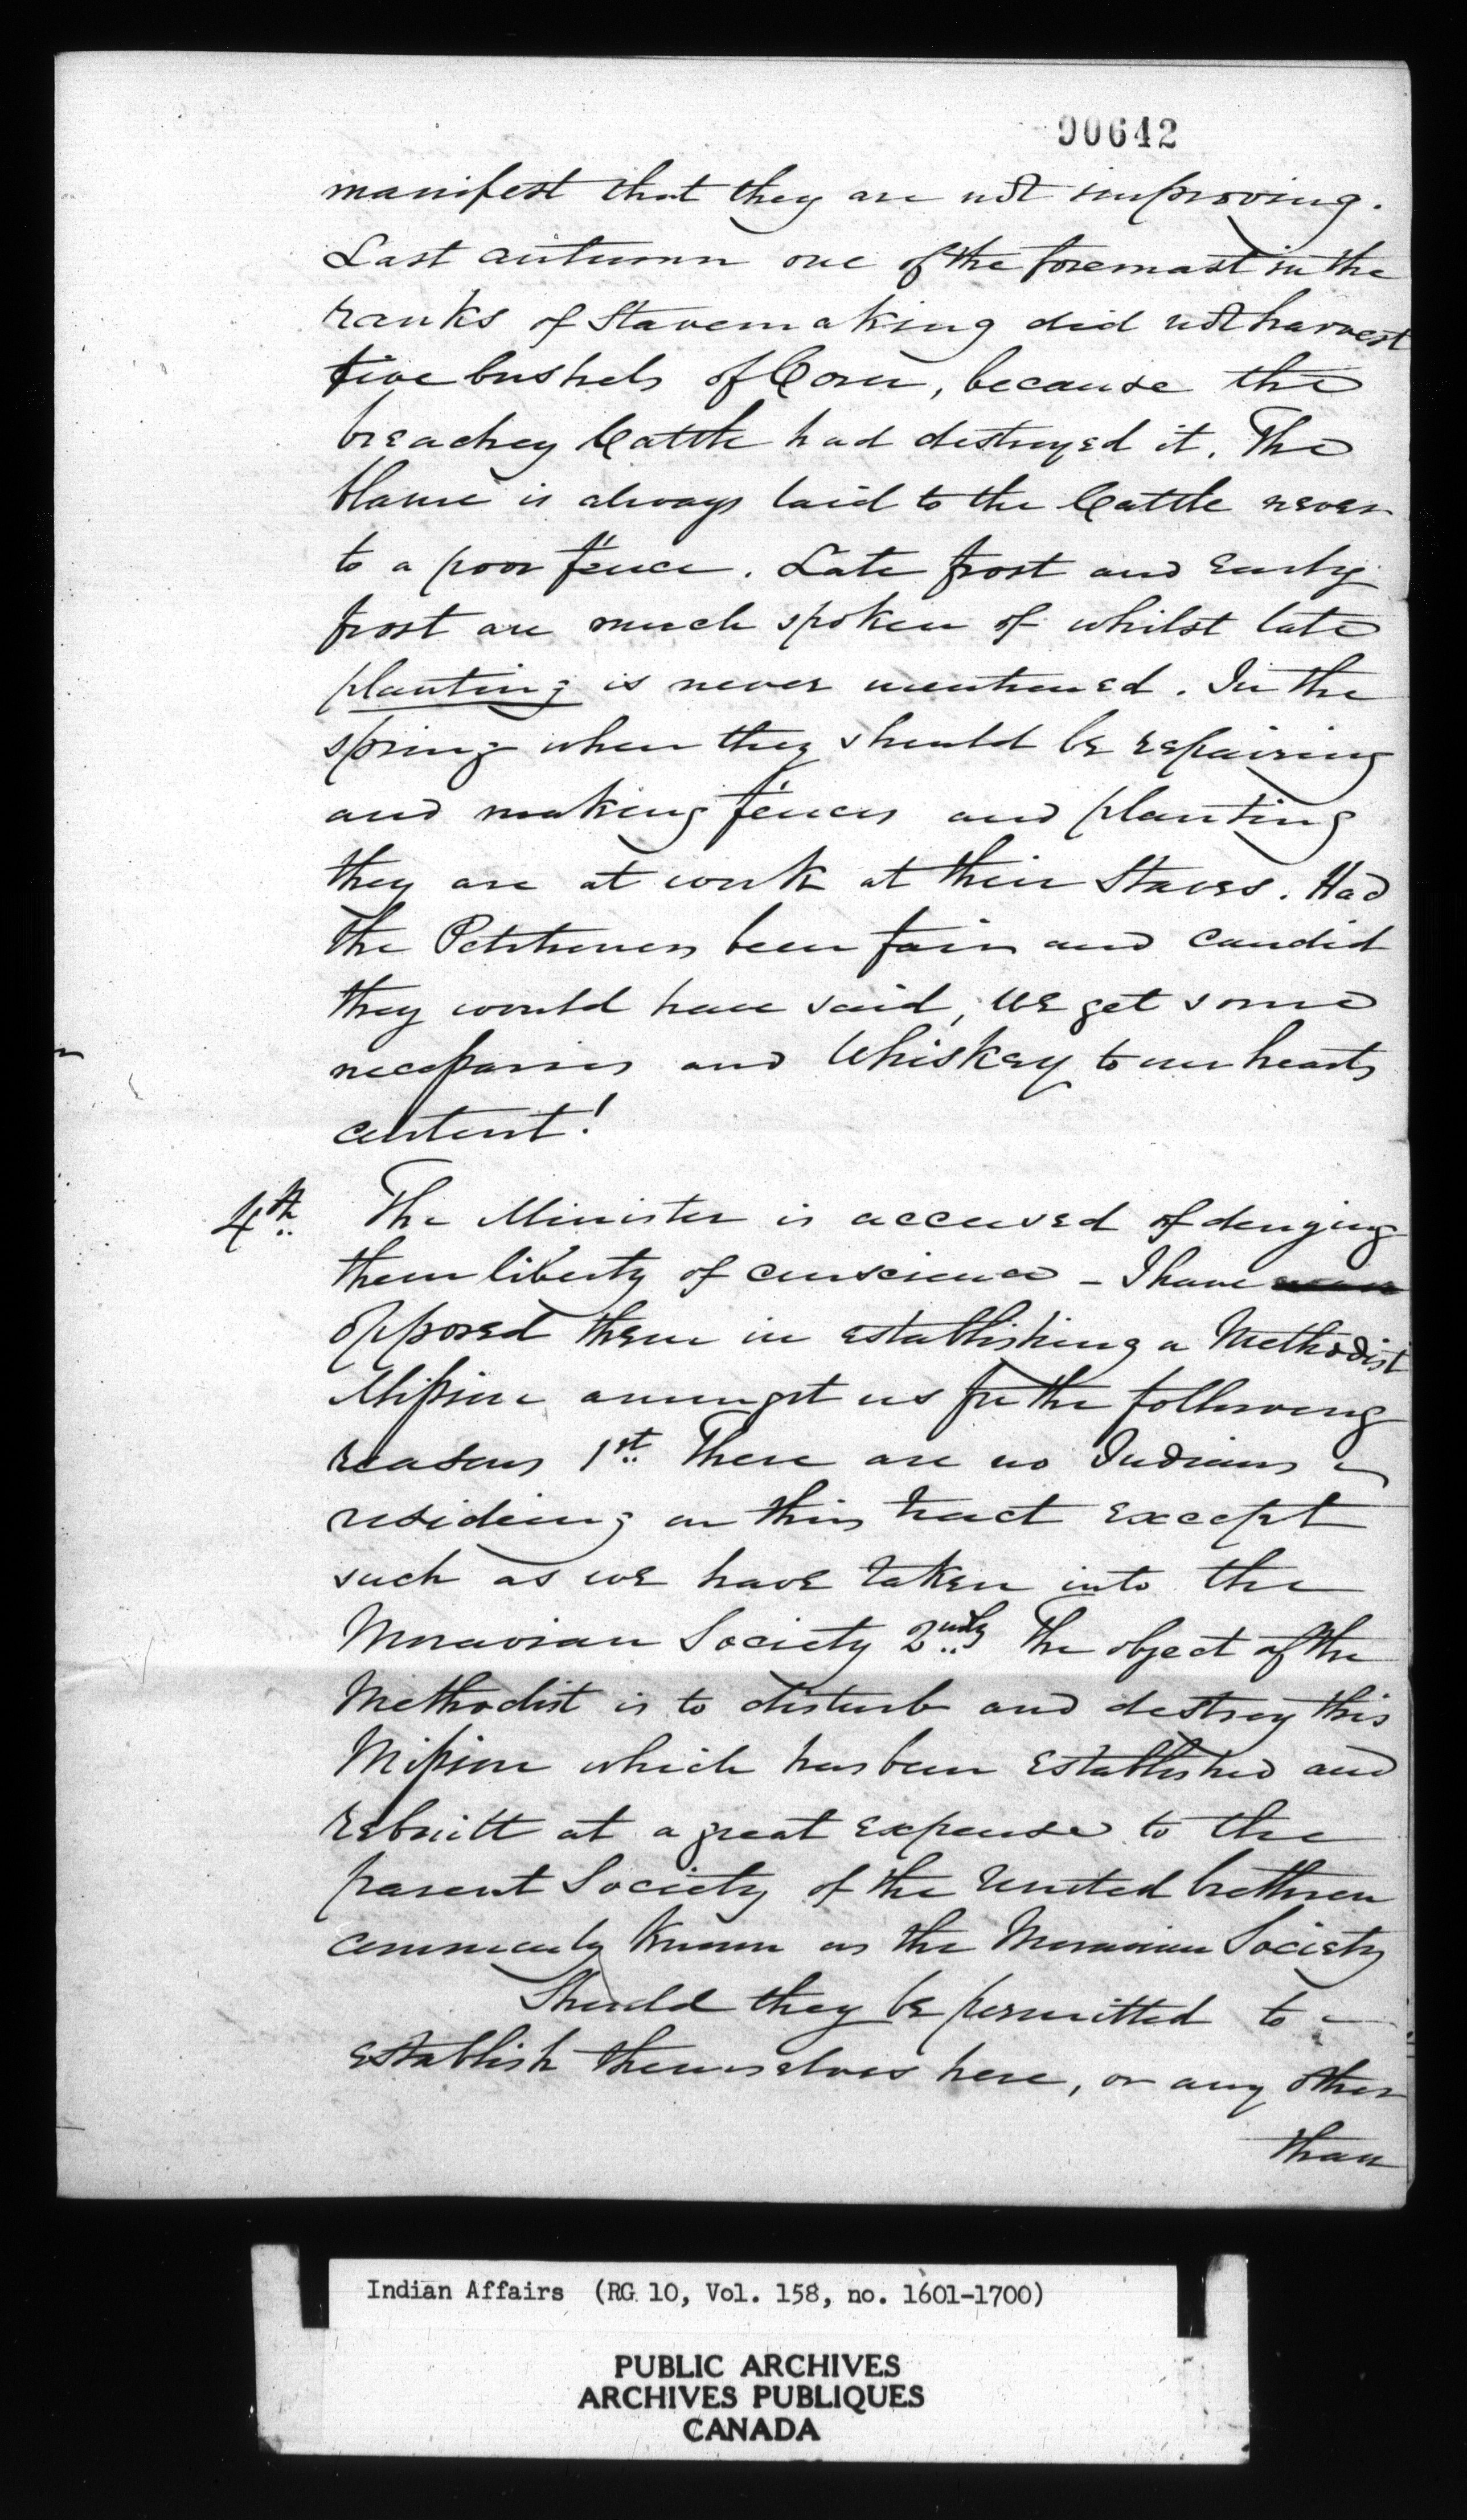 00642
manifest that they are not improving.
Last autumn one of the foremost in the
ranks of Stavemaking did not harvest
five bushels of Corn, because the
breachey Cattle had destroyed it. The
blame is always laid to the Cattle never
to a poor fence. Late frost and early
frost are much spoken of whilst late
planting is never mentioned. In the
spring when they should be repairing
and making fences and planting
they are at work at their Staves. Had
the Petitioners been fair and candid
they would have said, we get some
necessaries and Whiskey to our hearts
content!
4th The Minister is accused of denying
them liberty of conscience – I have
opposed them in establishing a Methodist
Mission amongst us for the following
reasons 1st There are no Indians
residing on this tract except
such as we have taken into the
Moravian Society 2ndly The object of the
Methodist is to disturb and destroy this
Mission which has been established and
rebuilt at a great expense to the
parent Society of the United brethren
commonly known as the Moravian Society
Should they be permitted to
establish themselves here, or any other
than
Indian Affairs (RG 10, Vol. 158, no. 1601-1700)
PUBLIC ARCHIVES
ARCHIVES PUBLIQUES
CANADA